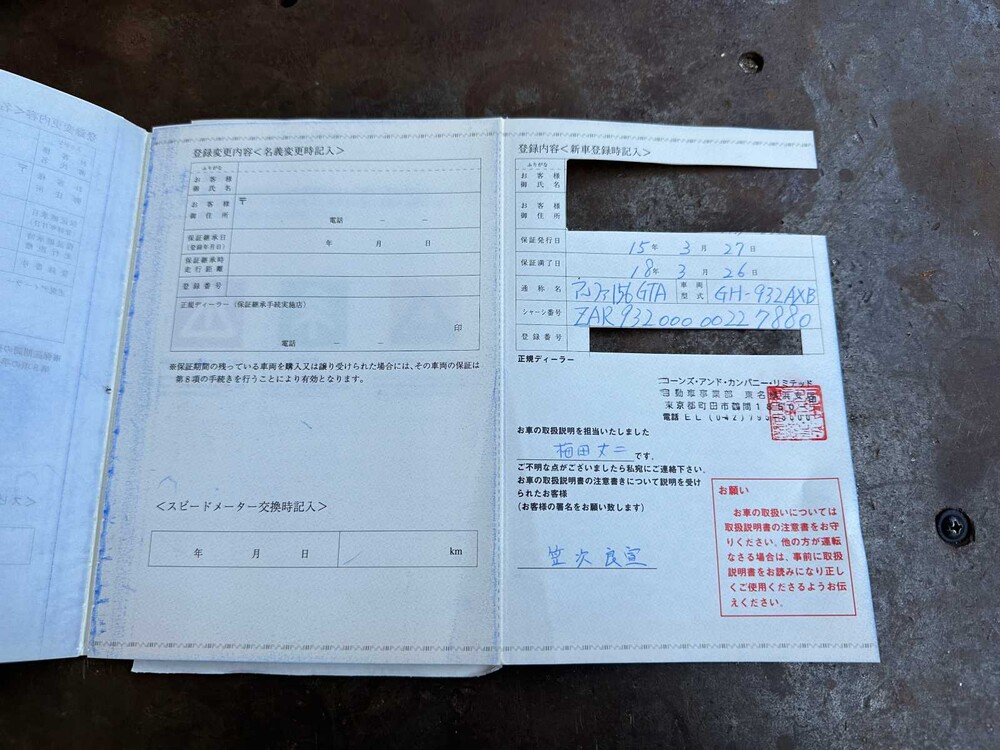 登録変更内容<名義変更時記入>
ふりがな
お客様
御氏名
お客様
御住所
〒
電話 － －
保証継承日
(登録年月日)
年 月 日
保証継承時
走行距離
登録番号
正規ディーラー（保証継承手続実施店）
印
電話 － －
※保証期間の残っている車両を購入又は譲り受けられた場合には、その車両の保証は
第8項の手続きを行うことにより有効となります。
<スピードメーター交換時記入>
年 月 日
km
登録内容<新車登録時記入>
ふりがな
お客様
御氏名
お客様
御住所
保証発行日 15年 3月 27日
保証満了日 18年 3月 26日
通称名 アルファ156GTA 車両型式 GH-932AXB
シャシー番号 ZAR93200000227880
登録番号
正規ディーラー
コーンズ・アンド・カンパニー・リミテッド
自動車事業部 東名横浜支店
東京都町田市鶴間
電話
お車の取扱説明を担当いたしました
梅田丈二 です。
ご不明な点がございましたら私宛にご連絡下さい。
お車の取扱説明書の注意書きについて説明を受け
られたお客様
(お客様の署名をお願い致します)
笠次良宣
お願い
お車の取扱いについては
取扱説明書の注意書をお守
りください。他の方が運転
なさる場合は、事前に取扱
説明書をお読みになり正し
くご使用くださるようお伝
えください。